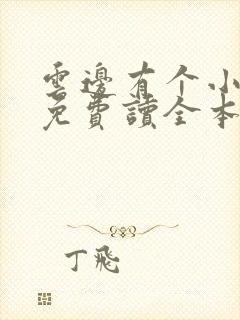 雲邊有个小
免費讀全本
丁飛